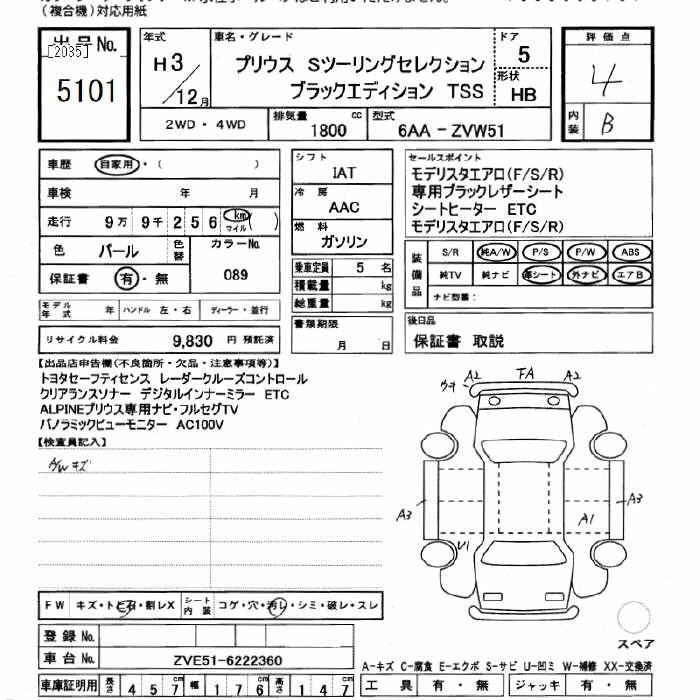 (複合機)対応用紙
出品No.
[2035]
5101
年式
H3/12月
車名・グレード
プリウス Sツーリングセレクション
ブラックエディション TSS
ドア
5
形状
HB
評価点
4
内装
B
2WD・4WD
排気量
1800 cc
型式
6AA-ZVW51
車歴 自家用・( )
車検 年 月
走行 9万 9千 2 5 6 km マイル( )
色 パール 色替
カラーNo.
089
保証書 有・無
シフト
IAT
冷房
AAC
燃料
ガソリン
乗車定員 5 名
積載量 kg
総重量 kg
セールスポイント
モデリスタエアロ(F/S/R)
専用ブラックレザーシート
シートヒーター ETC
モデリスタエアロ(F/S/R)
装備品
S/R 純A/W P/S P/W ABS
純TV 純ナビ 革シート 外ナビ エアB
ナビ型番:
モデル年式 年 ハンドル 左・右 ディーラー・並行
リサイクル料金 9,830 円 預託済
書類期限
月 日
後日品
保証書 取説
【出品店申告欄(不良箇所・欠品・注意事項等)】
トヨタセーフティセンス レーダークルーズコントロール
クリアランスソナー デジタルインナーミラー ETC
ALPINEプリウス専用ナビ・フルセグTV
パノラミックビューモニター AC100V
【検査員記入】
A/Wキズ
ウキ A2 FA A2
A3
A3
A1
U1
スペア
FW キズ・トビ石・割レX
シート内装 コゲ・穴・汚レ・シミ・破レ・スレ
登録No.
車台No. ZVE51-6222360
A-キズ C-腐食 E-エクボ S-サビ U-凹ミ W-補修 XX-交換済
車庫証明用 長さ 4 5 7 幅 1 7 6 高さ 1 4 7
工具 有・無 ジャッキ 有・無